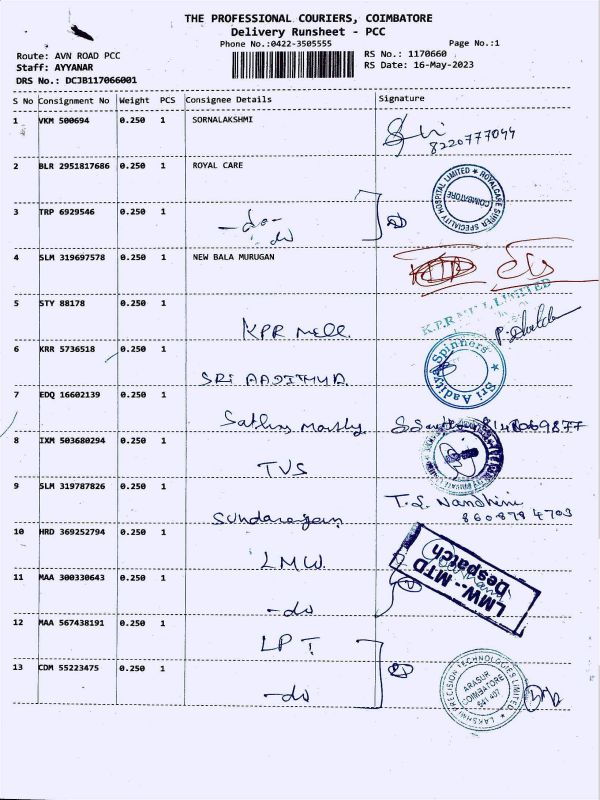 THE PROFESSIONAL COURIERS, COIMBATORE
Delivery Runsheet - PCC
Phone No.:0422-3505555
Page No.:1
Route: AVN ROAD PCC
RS No.: 1170660
Staff: AYYANAR
RS Date: 16-May-2023
DRS No.: DCJB117066001
S No Consignment No Weight PCS Consignee Details Signature
1 VKM 500694 0.250 1 SORNALAKSHMI
8220777094
2 BLR 2951817686 0.250 1 ROYAL CARE
ROYALCARE SUPER SPECIALITY HOSPITAL LIMITED
COIMBATORE
3 TRP 6929546 0.250 1 -do-
do
4 SLM 319697578 0.250 1 NEW BALA MURUGAN
5 STY 88178 0.250 1 KPR Mill
6 KRR 5736518 0.250 1 SRI AADITHYA
Sri Aaditya Spinners
7 EDQ 16602139 0.250 1
8 IXM 503680294 0.250 1 TVS
9 SLM 319787826 0.250 1
T.S. Nandhini
8608784703
10 HRD 369252794 0.250 1 LMW
LMW.- MTD
Despatch
11 MAA 300330643 0.250 1 -do
12 MAA 567438191 0.250 1 LPT
13 CDM 55223475 0.250 1 -do
LAKSHMI PRECISION TECHNOLOGIES LIMITED
ARASUR
COIMBATORE
641 407